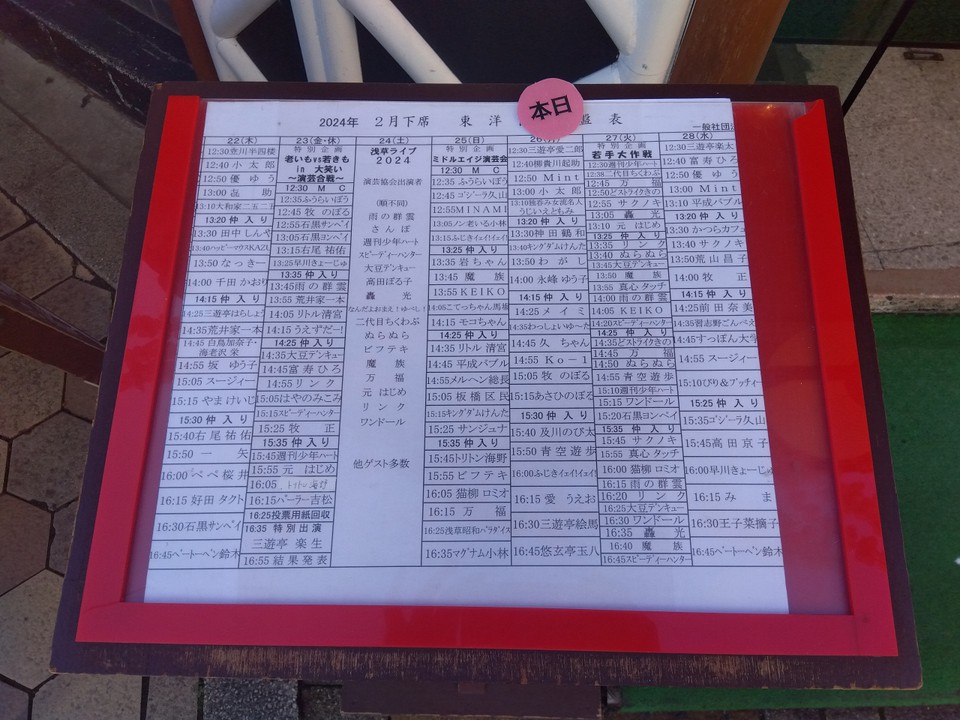 本日
2024年 2月下席 東洋 表
一般社団
22(木)
12:30荒川半四楼
12:40 小太郎
12:50 優ゆう
13:00 㐂助
13:10大和家二五二
13:20 仲入り
13:30 田中しんや
13:40ハッピーマウスKAZU
13:50 なっきー
14:00 千田かおり
14:15 仲入り
14:25三遊亭はらしょう
14:35荒井家一本
14:45 白鳥加奈子・
海老沢栄
14:55 坂ゆう子
15:05 スージィー
15:15 やまけいじ
15:30 仲入り
15:40右尾祐佑
15:50 一矢
16:00ぺぺ桜井
16:15 好田タクト
16:30石黒サンペイ
16:45ベートーベン鈴木
23(金・休)
特別企画
老いもvs若きも
in 大笑い
~演芸合戦~
12:30 MC
12:35ふうらいぼう
12:45 牧のぼる
12:55石黒サンペイ
13:05石黒ヨンペイ
13:15右尾祐佑
13:25早川きょーじゅ
13:35 仲入り
13:45雨の群雲
13:55 荒井家一本
14:05 リトル清宮
14:15うえずだー!
14:25 仲入り
14:35大豆デンキュー
14:45富寿ひろ
14:55 リンク
15:05はやのみこみ
15:15スピーディーハンター
15:25 牧正
15:35 仲入り
15:45週刊少年ハート
15:55 元はじめ
16:05
16:15パーラー吉松
16:25投票用紙回収
16:35 特別出演
三遊亭楽生
16:55 結果発表
24(土)
浅草ライブ
2024
演芸協会出演者
(順不同)
雨の群雲
さんぽ
週刊少年ハート
スピーディーハンター
大豆デンキュー
高田ぽる子
轟光
なんだよおまえ!ゆーし!
二代目ちくわぶ
ぬらぬら
ビフテキ
魔族
万福
元はじめ
リンク
ワンドール
他ゲスト多数
25(日)
特別企画
ミドルエイジ演芸会
12:30 MC
12:35 ふうらいぼう
12:45 ゴジーラ久山
12:55MINAMI
13:05ノン老いる小林
13:15ふじきイェイ!イェイ!
13:25 仲入り
13:35 岩ちゃん
13:45 魔族
13:55 KEIKO
14:05こてっちゃん馬場
14:15 モコちゃん
14:25 仲入り
14:35 リトル清宮
14:45 平成バブル
14:55メルヘン総長
15:05 板橋区民
15:15キングダムけんた
15:25 サンジュナ
15:35 仲入り
15:45トリトン海野
15:55 ビフテキ
16:05 猫柳ロミオ
16:15 万福
16:25浅草昭和パラダイス
16:35マグナム小林
12:30三遊亭愛二郎
12:40柳貴川起助
12:50 Mint
13:00 小太郎
うじいえともみ
13:20 仲入り
13:30神田鶴和
13:40キングダムけんた
13:50 わがし
14:00 永峰ゆう子
14:15 仲入り
14:25 メイミ
14:35わっしょいゆ~た
14:45 久ちゃん
14:55 Ko-1
15:05 牧のぼる
15:15あさひのぼる
15:30 仲入り
15:40 及川のび太
15:50 青空遊歩
16:00ふじきイェイ!イェイ!
16:15 愛うえお
16:30三遊亭絵馬
16:45悠玄亭玉八
27(火)
特別企画
若手大作戦
12:30週刊少年ハート
12:38二代目ちくわぶ
12:45 万福
12:50どストライクきの
12:55 サクノキ
13:05 轟光
13:10 元はじめ
13:25 仲入り
13:35 リンク
13:40 ぬらぬら
13:45大豆デンキュー
13:50 魔族
13:55 真心タッチ
14:00 雨の群雲
14:05 KEIKO
14:20スピーディーハンター
14:25 仲入り
14:35どストライクきの
14:45 万福
14:50 ぬらぬら
14:55 青空遊歩
15:10週刊少年ハート
15:15 ワンドール
15:20石黒ヨンペイ
15:35 仲入り
15:45 サクノキ
15:55 真心タッチ
16:00 猫柳ロミオ
16:15 雨の群雲
16:20 リンク
16:25大豆デンキュー
16:30 ワンドール
16:35 轟光
16:40 魔族
16:45スピーディーハンター
28(水)
12:30三遊亭楽太
12:40 富寿ひろ
12:50 優ゆう
13:00 Mint
13:10 平成バブル
13:20 仲入り
13:30 かつらカフェ
13:40 サクノキ
13:50荒山昌子
14:00 牧正
14:15 仲入り
14:25前田奈美
14:35習志野ごんべえ
14:45すっぽん大学
14:55 スージィー
15:10ぴり&プッチィー
15:25 仲入り
15:35ゴジーラ久山
15:45高田京子
16:00早川きょーじゅ
16:15 みま
16:30王子菜摘子
16:45ベートーベン鈴木